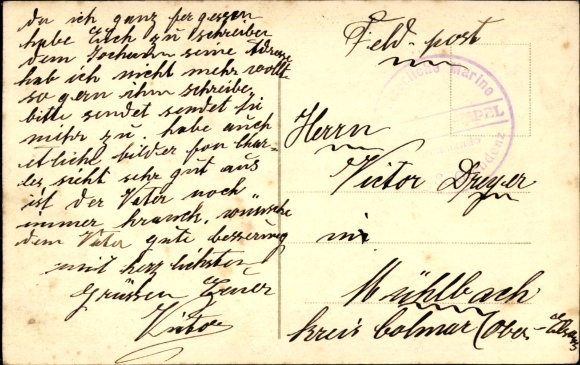 da ich ganz fergessen
habe Euch zu schreiben
dem Jochumn seine Adresse
hab ich nicht mehr wollte
so gern ihm schreibe
bitte sendet sendet sie
mehr zu. habe auch
etliche bilder fon Char-
les, sicht sehr gut aus
ist der Vater noch
immer kranck, wünsche
dem Vater gute besserung
mit herzlichsten
Grüssen Euer
Victor
Feld-post
Marine
Herrn
Victor Dreyer
in
Mühlbach
Kreis Colmar (Ober-Elsass